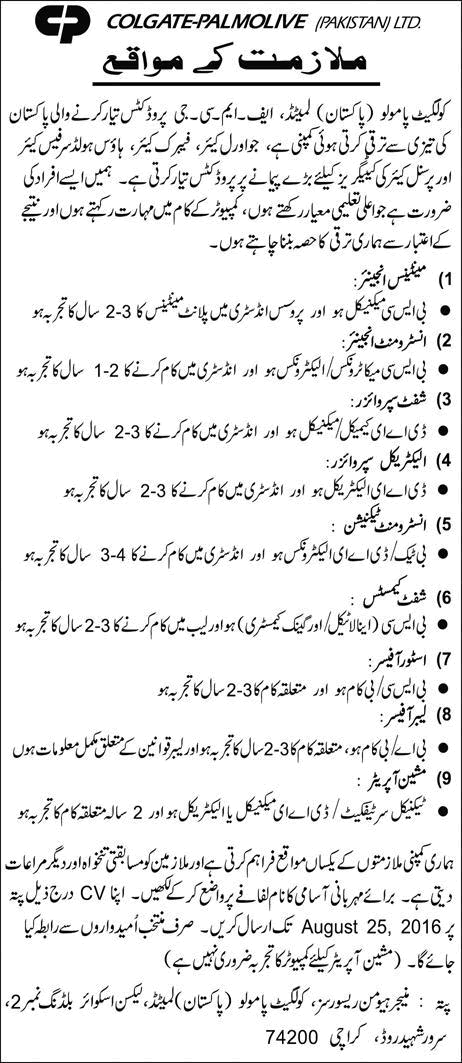 COLGATE-PALMOLIVE (PAKISTAN) LTD.
ملازمت کے مواقع
کولگیٹ پامولو (پاکستان) لمیٹڈ، ایف۔ایم۔سی۔جی پروڈکٹس تیار کرنے والی پاکستان
کی تیزی سے ترقی کرتی ہوئی کمپنی ہے، جو اورل کیئر، فیبرک کیئر، ہاؤس ہولڈ سرفیس کیئر
اور پرسنل کیئر کی کیٹیگریز کیلئے بڑے پیمانے پر پروڈکٹس تیار کرتی ہے۔ ہمیں ایسے افراد کی
ضرورت ہے جو اعلی تعلیمی معیار رکھتے ہوں، کمپیوٹر کے کام میں مہارت رکھتے ہوں اور نتیجے
کے اعتبار سے ہماری ترقی کا حصہ بننا چاہتے ہوں۔
1) مینٹیننس انجینئر:
● بی ایس سی میکینیکل ہو اور پروسس انڈسٹری میں پلانٹ مینٹیننس کا 3-2 سال کا تجربہ ہو
2) انسٹرومنٹ انجینئر:
● بی ایس سی میکاٹرونکس/الیکٹرونکس ہو اور انڈسٹری میں کام کرنے کا 2-1 سال کا تجربہ ہو
3) شفٹ سپروائزر:
● ڈی اے ای کیمیکل/میکینیکل ہو اور انڈسٹری میں کام کرنے کا 3-2 سال کا تجربہ ہو
4) الیکٹریکل سپروائزر:
● ڈی اے ای الیکٹریکل ہو اور انڈسٹری میں کام کرنے کا 3-2 سال کا تجربہ ہو
5) انسٹرومنٹ ٹیکنیشن :
● بی ٹیک/ڈی اے ای الیکٹرونکس ہو اور انڈسٹری میں کام کرنے کا 4-3 سال کا تجربہ ہو
6) شفٹ کیمسٹس :
● بی ایس سی (اینالائیٹیکل/اورگینک کیمسٹری) ہو اور لیب میں کام کرنے کا 3-2 سال کا تجربہ ہو
7) اسٹور آفیسر:
● بی ایس سی/بی کام ہو اور متعلقہ کام کا 3-2 سال کا تجربہ ہو
8) لیبر آفیسر:
● بی اے/بی کام ہو، متعلقہ کام کا 3-2 سال کا تجربہ ہو اور لیبر قوانین کے متعلق مکمل معلومات ہوں
9) مشین آپریٹر:
● ٹیکنیکل سرٹیفکیٹ/ڈی اے ای میکینیکل یا الیکٹریکل ہو اور 2 سالہ متعلقہ کام کا تجربہ ہو
ہماری کمپنی ملازمتوں کے یکساں مواقع فراہم کرتی ہے اور ملازمین کو مسابقتی تنخواہ اور دیگر مراعات
دیتی ہے۔ برائے مہربانی آسامی کا نام لفافے پر واضع کر کے لکھیں۔ اپنا CV درج ذیل پتہ
پر August 25, 2016 تک ارسال کریں۔ صرف منتخب اُمیدواروں سے رابطہ کیا
جائے گا۔ (مشین آپریٹر کیلئے کمپیوٹر کا تجربہ ضروری نہیں ہے)
پتہ : منیجر ہیومن ریسورسز، کولگیٹ پامولو (پاکستان) لمیٹڈ، لیکسن اسکوائر بلڈنگ نمبر 2،
سرور شہید روڈ، کراچی 74200